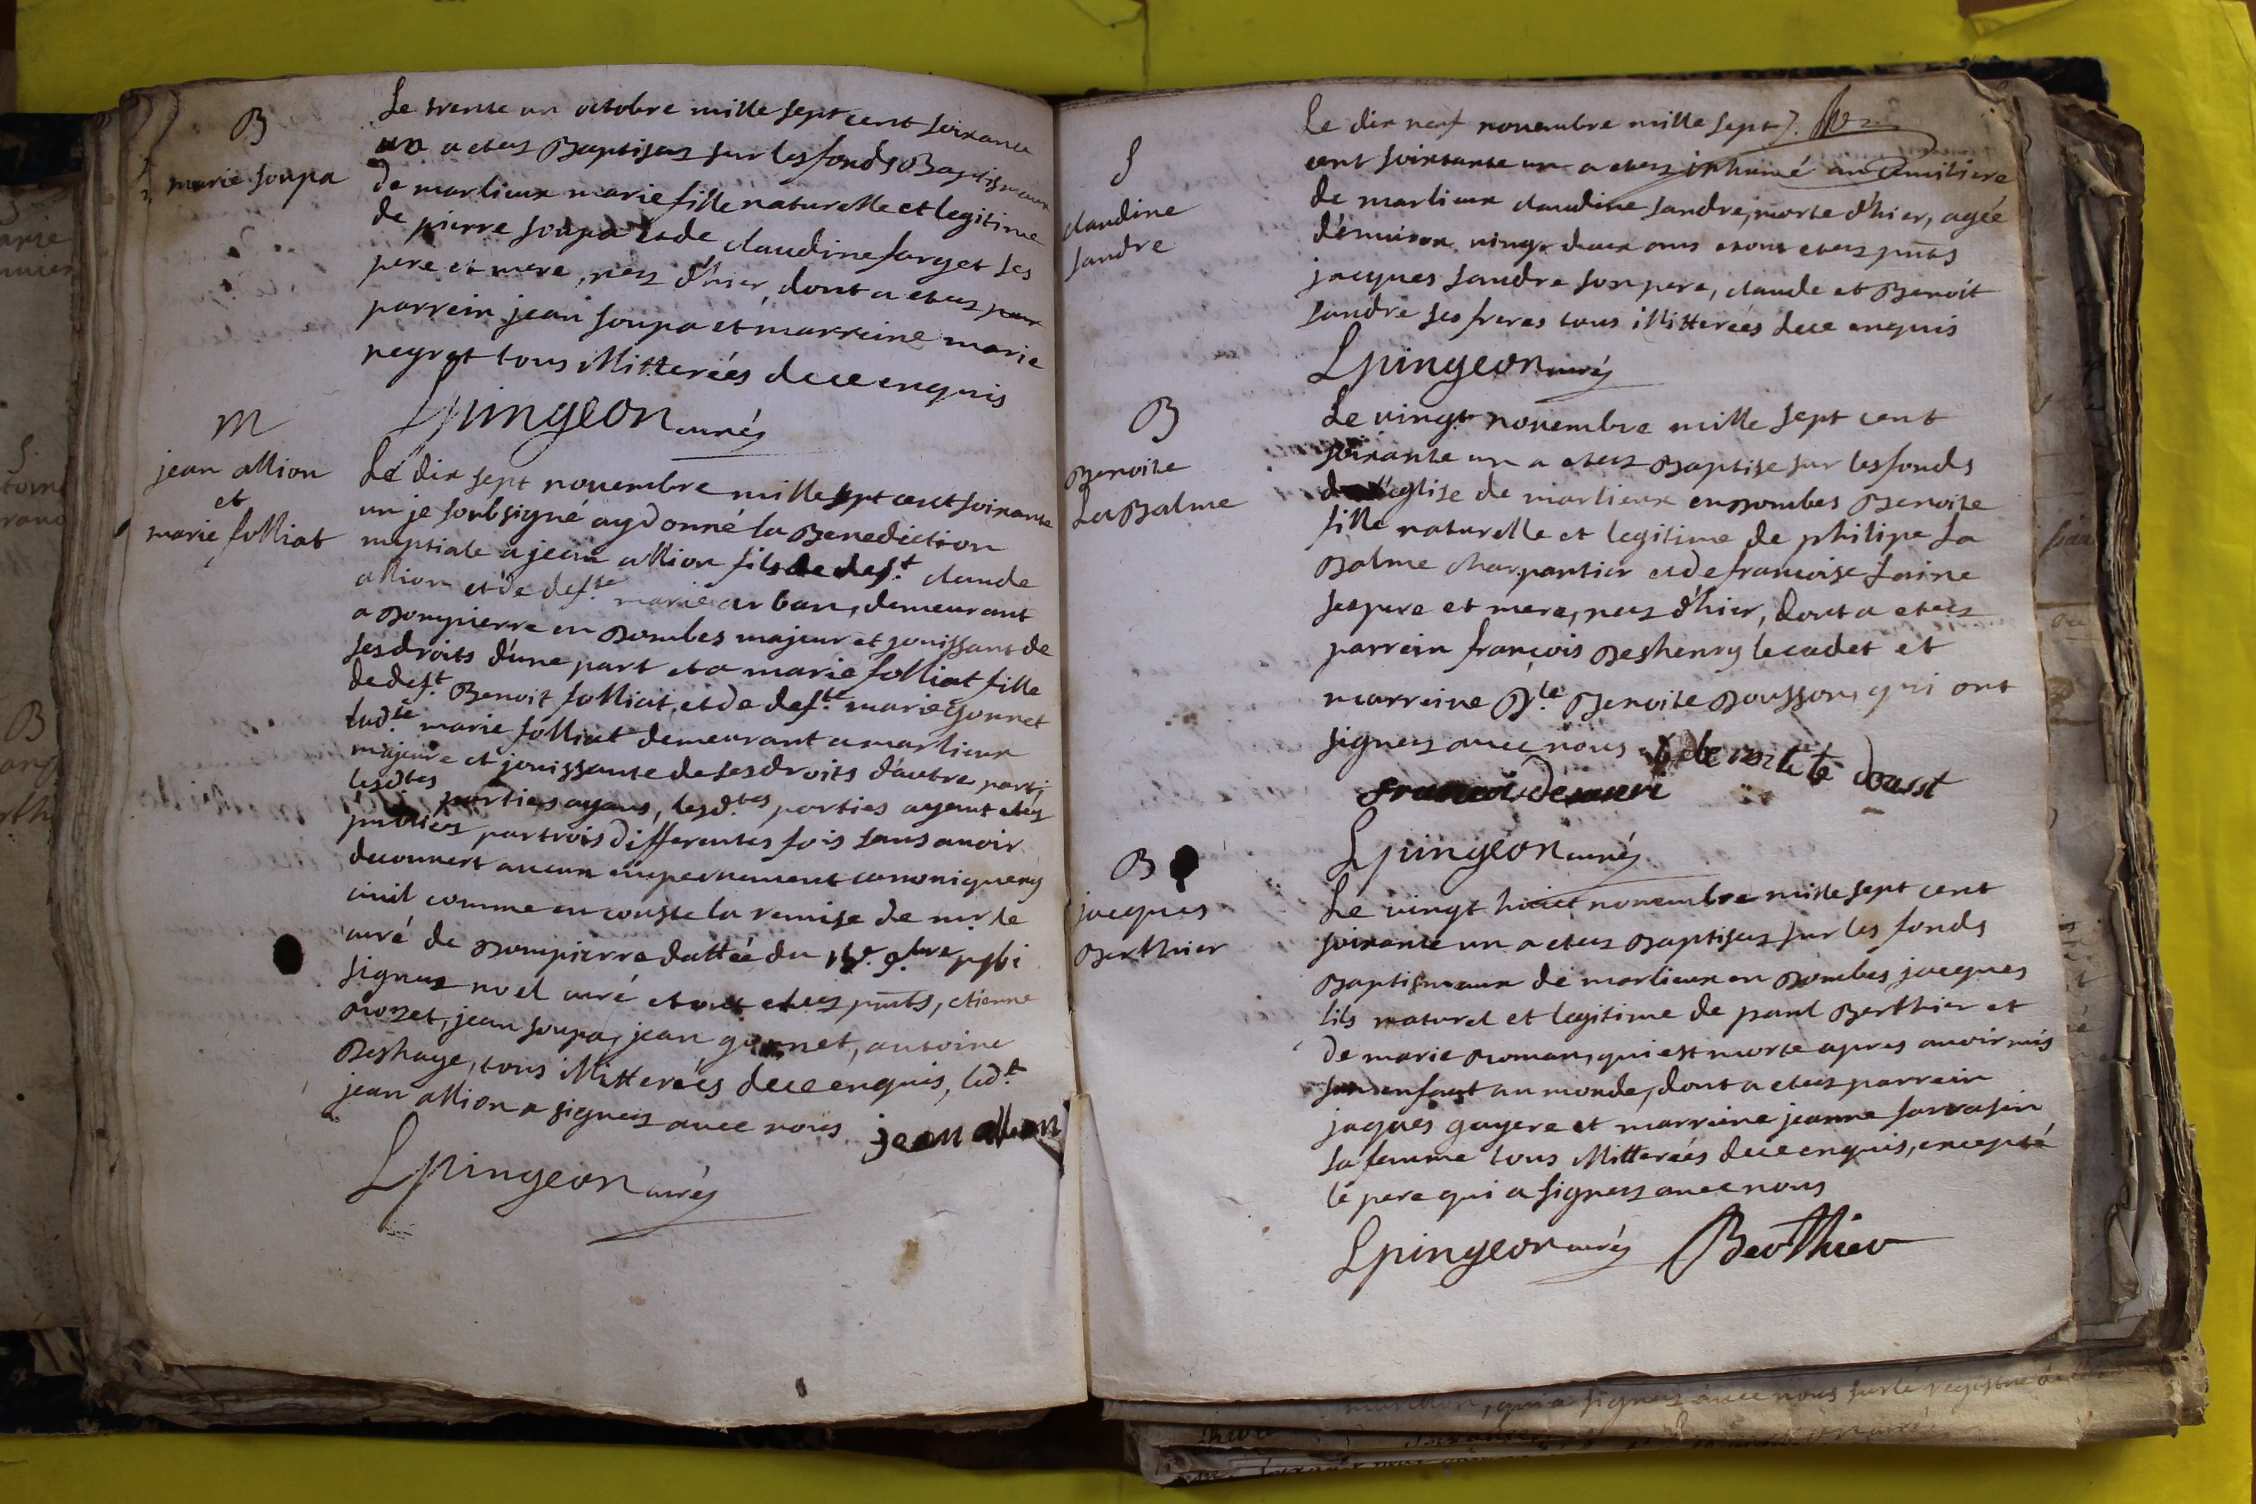 B
marie soupa
Le trente un octobre mille sept cent soixante
un a eteez Baptiseez sur les fonds Baptismaux
de marlieux marie fille naturelle et legitime
de pierre soupa et de claudine farget ses
pere et mere, neez d'hier, dont a eteez
parrein jean soupa et marreine marie
peyret tous illitterées de ce enquis
Lpingeon curéz
m
jean allion
et
marie folliat
Le dix sept novembre mille sept cent soixante
un je soubsigné ay donné la Benediction
nuptiale a jean allion fils de deft. claude
allion et de defte. marie urban, demeurant
a Dompierre en Dombes majeur et jouissant de
ses droits d'une part et a marie folliat fille
de deft. Benoit folliat et de defte. marie gonnet
ladte. marie folliat demeurant a marlieux
majeure et jouissante de ses droits d'autre part;
lesdtes parties ayans, lesdtes parties ayant eteez
publiéez par trois differentes fois sans avoir
decouvert aucun empechement canonique ny
civil comme en conste la remise de mr. le
curé de Dompierre dattée du 9.bre
signeez noel curé et ont eteez pnts, etienne
jean soupa, jean gonnet, antoine
Deshaye, tous illitterées de ce enquis, led.t
jean allion a signeez avec nous. jean allion
Lpingeon curéz
S
claudine
sandre
Le dix neuf novembre mille sept
cent soixante un a eteez inhumé au cemitiere
de marlieux claudine sandre, morte d'hier, agée
d'environ vingt deux ans et ont eteez pnts
jacques sandre son pere, claude et Benoit
sandre ses freres tous illitterées de ce enquis
Lpingeon curéz
B
Benoite
La Balme
Le vingt novembre mille sept cent
soixante un a eteez Baptise sur les fonds
de l'eglise de marlieux en Dombes Benoite
fille naturelle et legitime de philipe La
Balme charpantier et de francoise Laine
ses pere et mere, neez d'hier, dont a eteez
parrein françois Deshenry le cadet et
marreine D.lle Benoite Dousson, qui ont
signeez avec nous
Lpingeon curéz
B
jacques
Berthier
Le vingt huict novembre mille sept cent
soixante un a eteez Baptiseez sur les fonds
Baptismaux de marlieux en Dombes jacques
fils naturel et legitime de paul Berthier et
de marie Roman, qui est morte apres avoir mis
son enfant au monde, dont a eteez parrein
jaques guyere et marreine jeanne sarrasin
sa femme tous illitterées de ce enquis, excepté
le pere qui a signeez avec nous
Lpingeon curéz Berthier